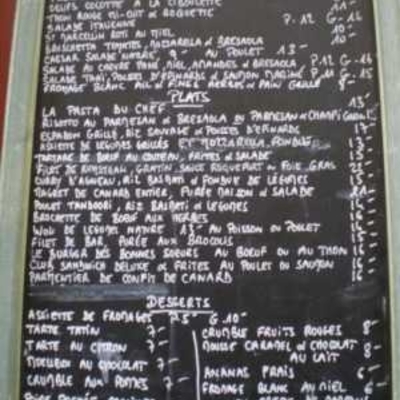 OEUFS COCOTTE A LA CIBOULETTE 11-
THON ROUGE MI-CUIT & ROQUETTE P.12 G-16
SALADE ITALIENNE 10-
ST MARCELLIN ROTI AU MIEL 10-
BRUSCHETTA TOMATES, MOZZARELLA & BRESAOLA
CAESAR SALADE NATURE 9- AU POULET 13-
SALADE AU CHEVRE PANE, MIEL, AMANDES & BRESAOLA P.12 G-16
SALADE THAI, POUSSES D'EPINARDS & SAUMON MARINE P.11 G.15
FROMAGE BLANC AIL & FINES HERBES & PAIN GRILLE 8-
PLATS
LA PASTA DU CHEF 13-
RISOTTO AU PARMESAN & BRESAOLA OU PARMESAN & CHAMPI
ESPADON GRILLE, RIZ SAUVAGE & POUSSES D'EPINARDS 17-
ASSIETTE DE LEGUMES GRILLES ET MOZZARELLA FONDUE 13-
TARTARE DE BOEUF AU COUTEAU, FRITES & SALADE 15-
FILET DE RUMSTEAK, GRATIN, SAUCE ROQUEFORT OU FOIE GRAS
CURRY D'AGNEAU, RIZ BASMATI & FONDUE DE LEGUMES 15-
MAGRET DE CANARD ENTIER, PUREE MAISON & SALADE
POULET TANDOORI, RIZ BASMATI & LEGUMES 15-
BROCHETTE DE BOEUF AUX HERBES 16-
WOK DE LEGUMES NATURE 13- AU POISSON OU POULET 16-
FILET DE BAR, PUREE AUX BROCOLIS 16-
LE BURGER DES BONNES SOEURS AU BOEUF OU AU THON 16-
CLUB SANDWICH DELUXE & FRITES AU POULET OU SAUMON 16-
PARMENTIER DE CONFIT DE CANARD 16-
DESSERTS
ASSIETTE DE FROMAGES P.5- G 10-
TARTE TATIN 7-
TARTE AU CITRON 7-
MOELLEUX AU CHOCOLAT 7-
CRUMBLE AUX POMMES 7-
CRUMBLE FRUITS ROUGES 8-
MOUSSE CARAMEL & CHOCOLAT
AU LAIT 8-
ANANAS FRAIS 6-
FROMAGE BLANC AU MIEL 6-